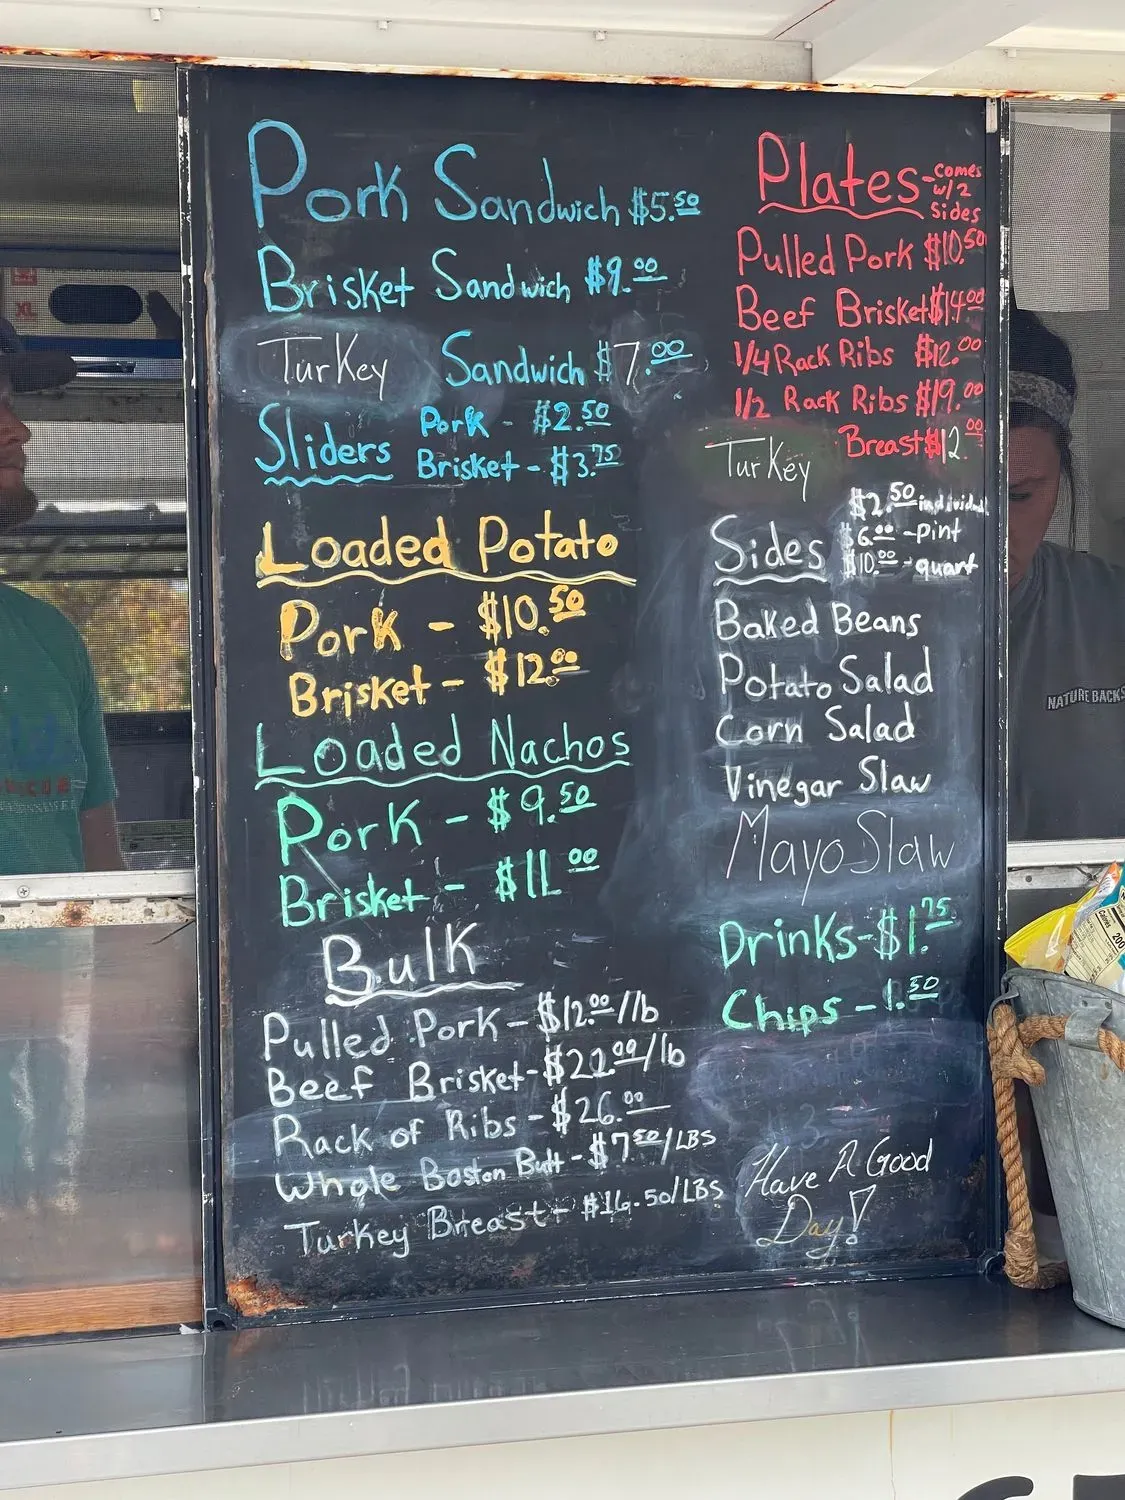 Pork Sandwich $5.50
Brisket Sandwich $9.00
Turkey Sandwich $7.00
Sliders Pork - $2.50
Brisket - $3.75
Loaded Potato
Pork - $10.50
Brisket - $12.00
Loaded Nachos
Pork - $9.50
Brisket - $11.00
Bulk
Pulled Pork - $12.00/lb
Beef Brisket - $22.00/lb
Rack of Ribs - $26.00
Whole Boston Butt - $7.50/LBS
Turkey Breast - $16.50/LBS
Plates - comes
w/2
sides
Pulled Pork $10.50
Beef Brisket $14.00
1/4 Rack Ribs $12.00
1/2 Rack Ribs $19.00
Turkey Breast $12.00
Sides
$2.50 individual
$6.00 - pint
$10.00 - quart
Baked Beans
Potato Salad
Corn Salad
Vinegar Slaw
Mayo Slaw
Drinks - $1.75
Chips - 1.50
Have A Good
Day!
XL
NATURE BACKS
200